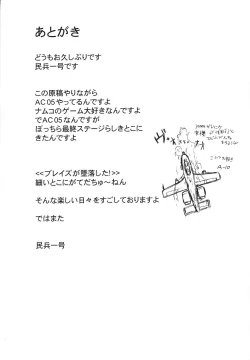 あとがき
どうもお久しぶりです
民兵一号です
この原稿やりながら
AC05やってるんですよ
ナムコのゲーム大好きなんですよ
でAC05なんですが
ぼっちら最終ステージらしきとこに
きたんですよ
<<ブレイズが墜落した!>>
細いとこにがてだちゅ〜ねん
そんな楽しい日々をすごしておりますよ
ではまた
民兵一号
A-10